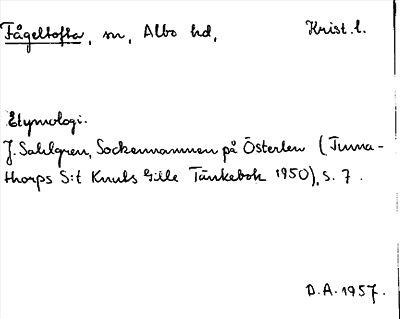 Fågeltofta, sn, Albo hd, Krist. l.
Etymologi.
J. Sahlgren, Sockennamnen på Österlen (Tuma-
thorps S:t Knuts Gille Tänkebok 1950), s. 7.
D.A. 1957.